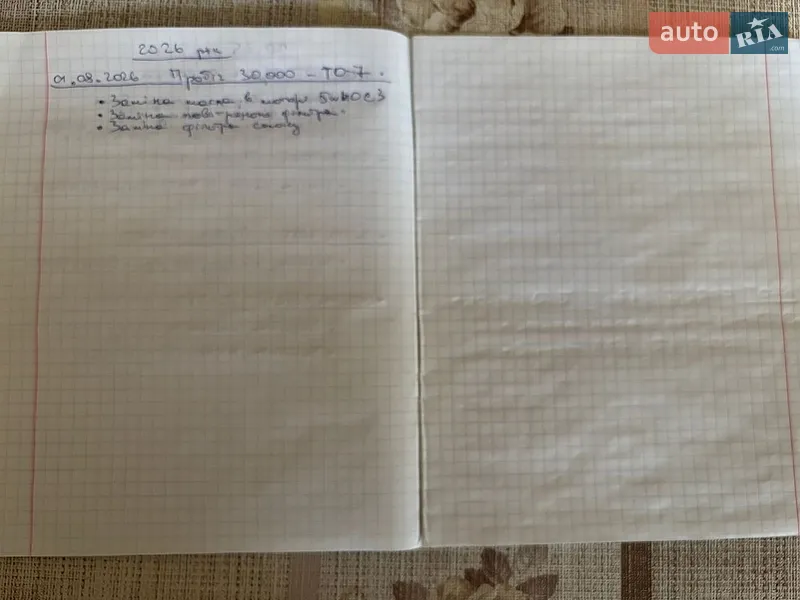 2026 рік
01.08.2026 Пробіг 30,000 - ТО-7.
• Заміна масла в моторі 5w40 C3
• Заміна повітряного фільтра.
• Заміна фільтра салону
auto RIA.com